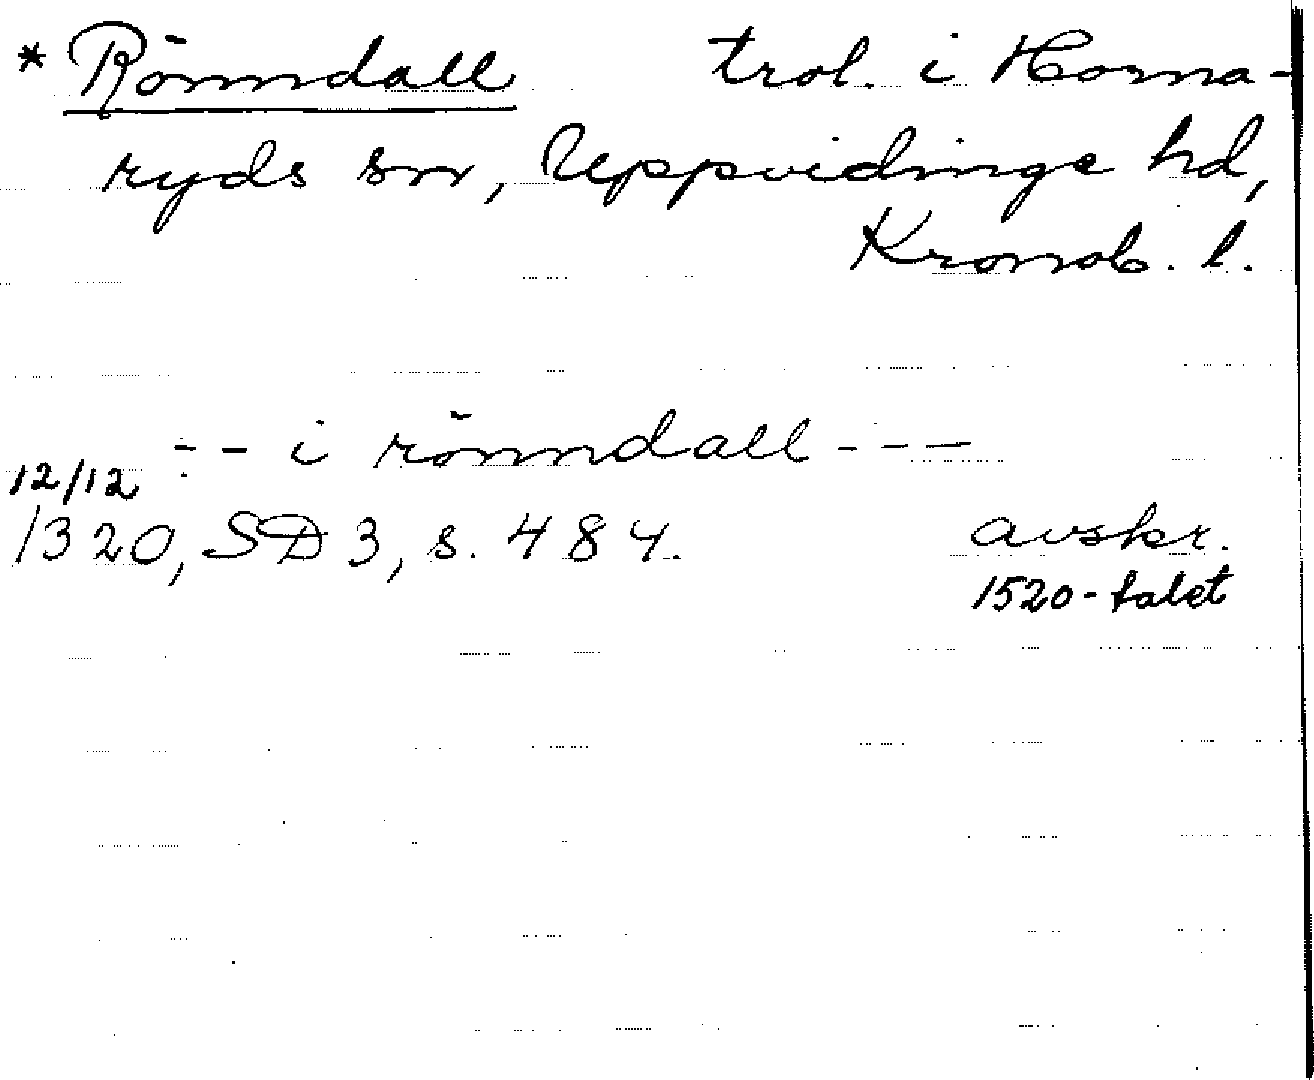 * Römndall trol. i Horna-
ryds sn, Uppvidinge hd,
Kronob. l.
- - - i römndall - - -
12/12
1320, SD 3, s. 484. avskr.
1520-talet